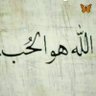 الله هو الحُب